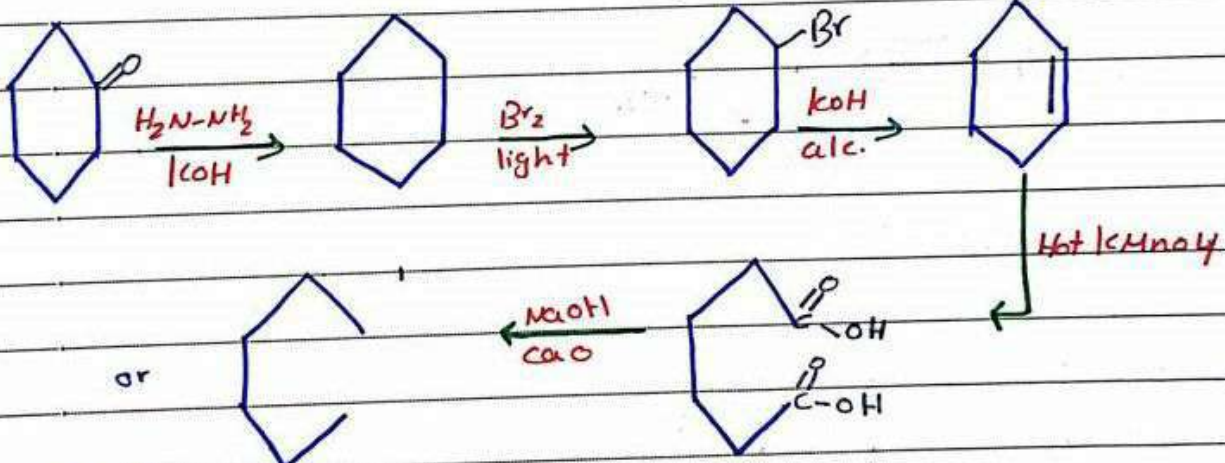 O
H₂N-NH₂
KOH
Br₂
light
Br
KOH
alc.
Hot KMnO4
O
C-OH
O
C-OH
NaOH
CaO
or